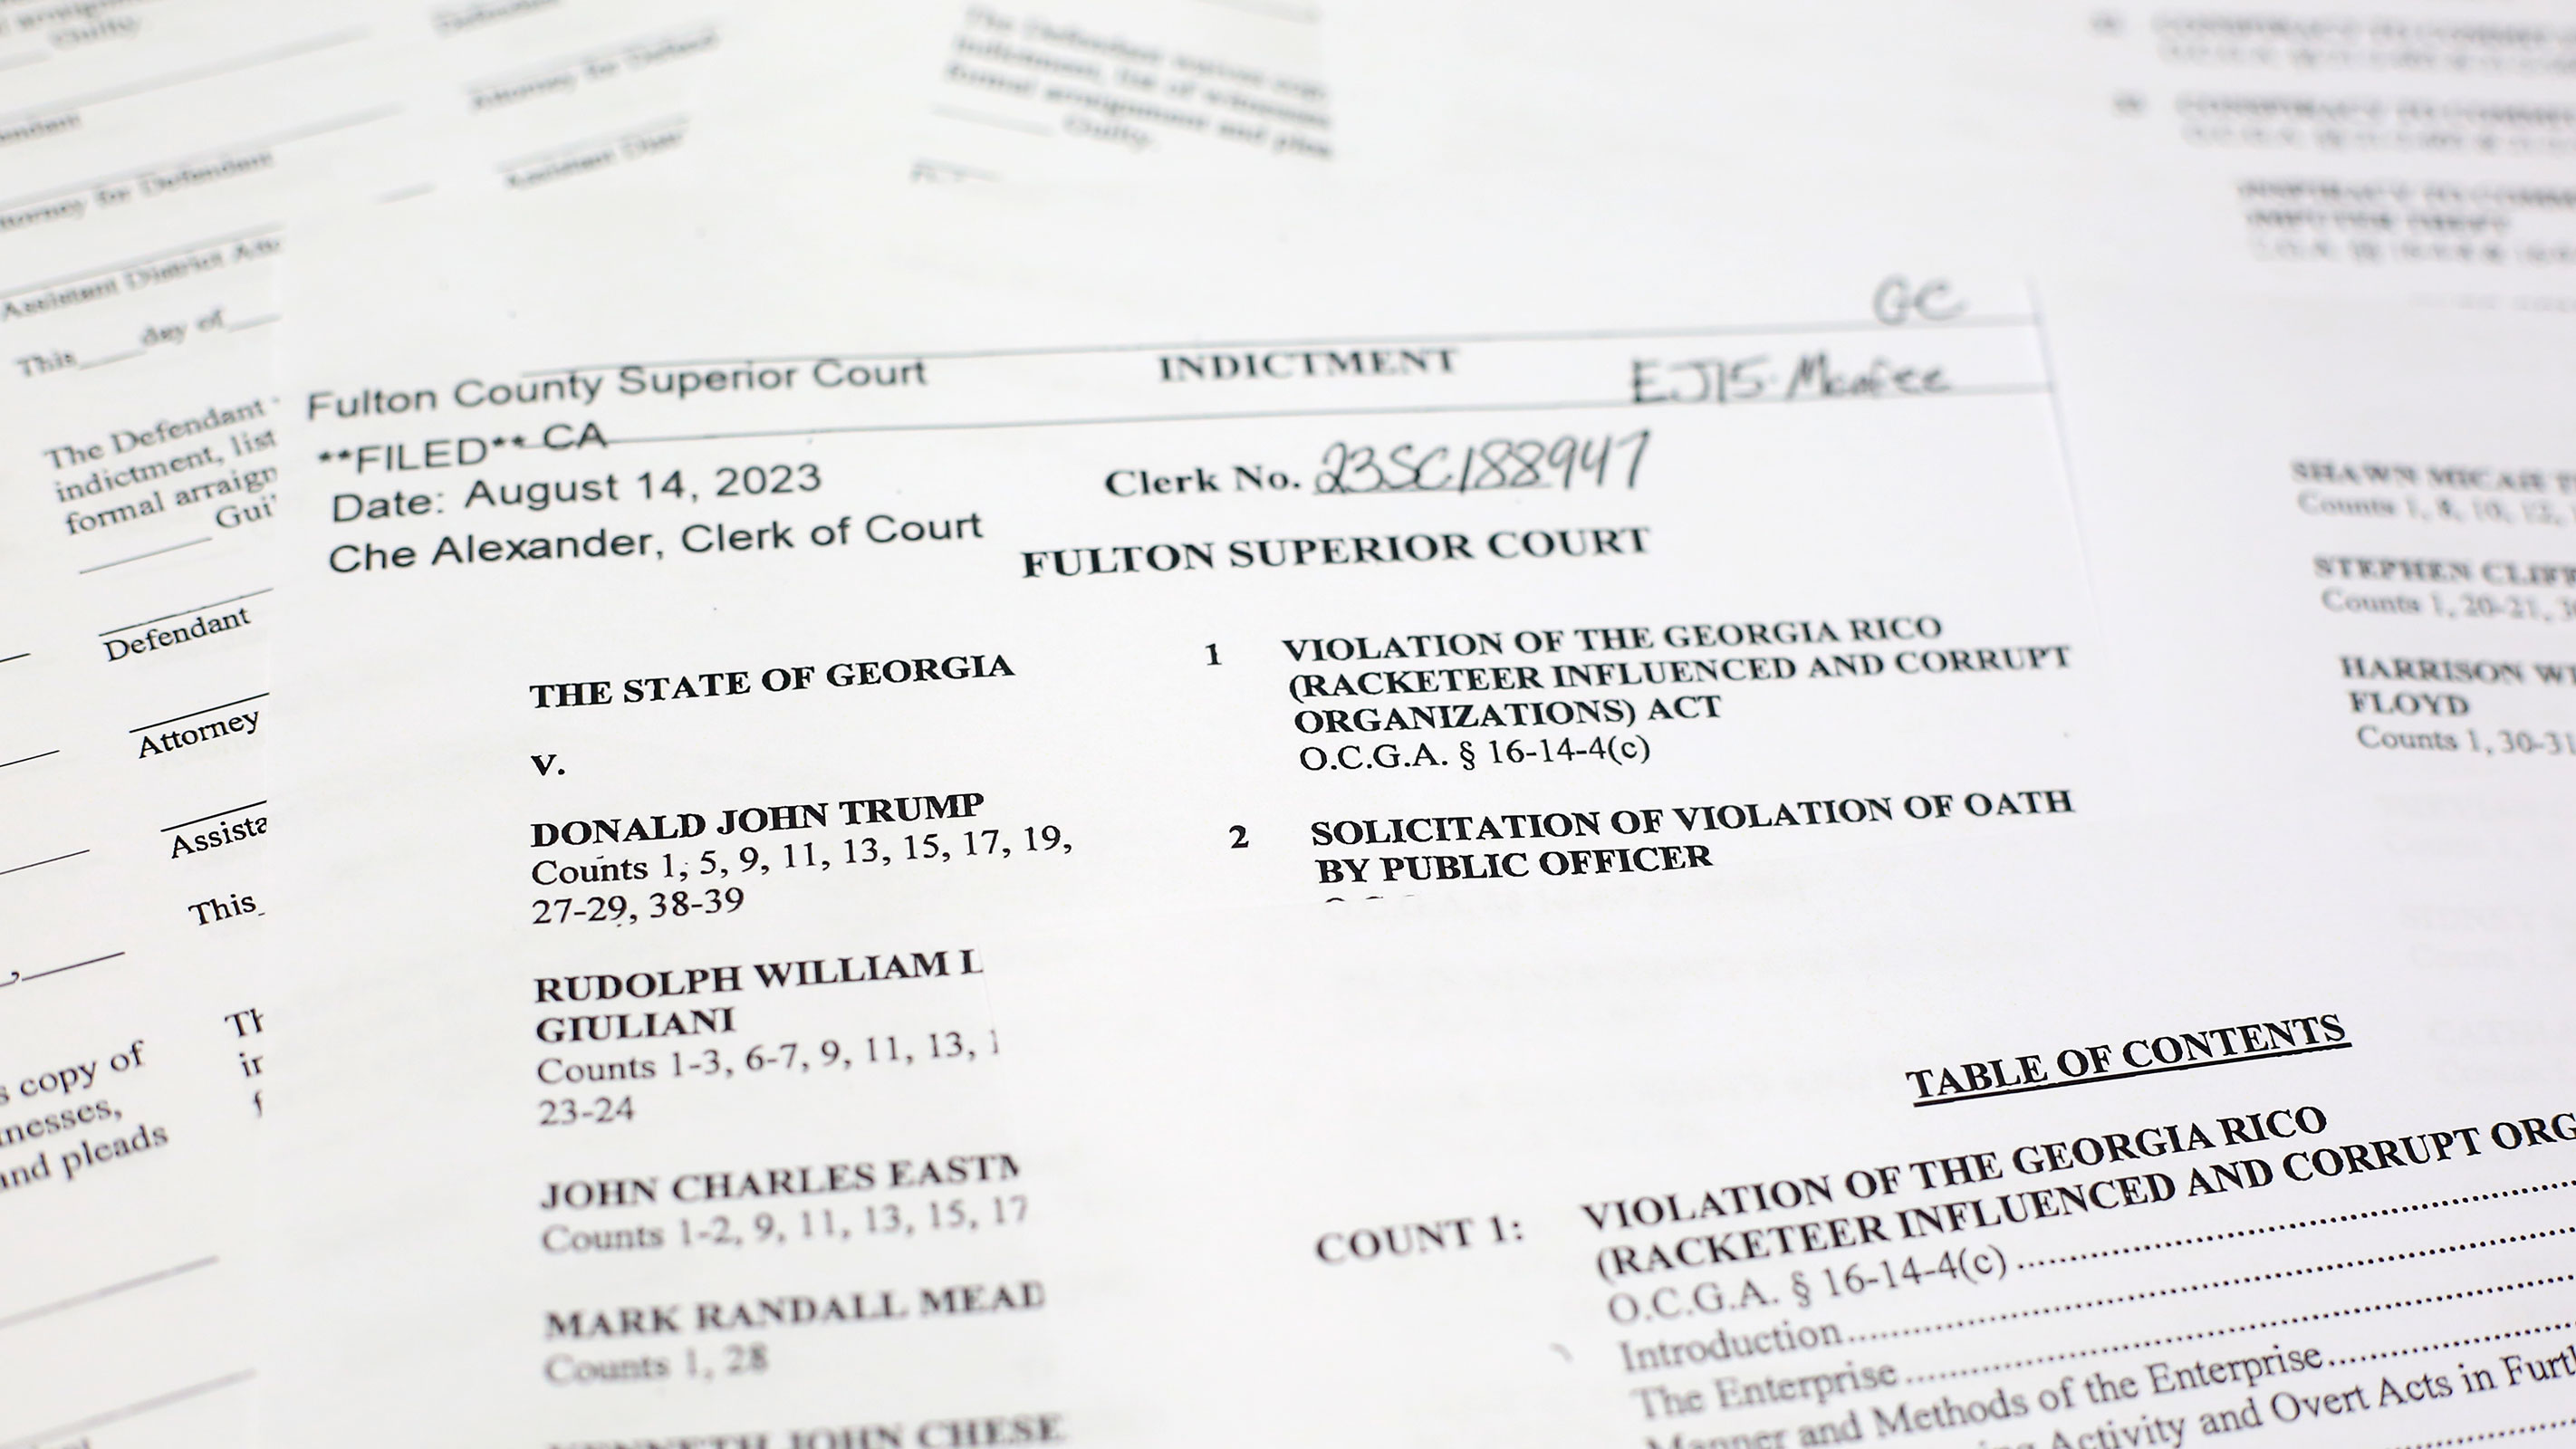 Guilty.
Defendant
Attorney for Defendant
Assistant District
The Defendant waives copy
indictment, list of witnesses
formal arraignment and plea
Guilty.
Attorney for Defendant
Assistant District Atto
This____day of____
The Defendant
indictment, list
formal arraign
Defendant
Attorney
Assista
This_
s copy of
nesses,
and pleads
GC
INDICTMENT
EJ15 Mcafee
Fulton County Superior Court
**FILED** CA
Date: August 14, 2023
Che Alexander, Clerk of Court
Clerk No. 23SC188947
FULTON SUPERIOR COURT
THE STATE OF GEORGIA
v.
DONALD JOHN TRUMP
Counts 1, 5, 9, 11, 13, 15, 17, 19,
27-29, 38-39
RUDOLPH WILLIAM L
GIULIANI
Counts 1-3, 6-7, 9, 11, 13, 1
23-24
JOHN CHARLES EASTM
Counts 1-2, 9, 11, 13, 15, 17
MARK RANDALL MEAD
Counts 1, 28
KENNETH JOHN CHESE
1 VIOLATION OF THE GEORGIA RICO
(RACKETEER INFLUENCED AND CORRUPT
ORGANIZATIONS) ACT
O.C.G.A. § 16-14-4(c)
2 SOLICITATION OF VIOLATION OF OATH
BY PUBLIC OFFICER
SHAWN MICAH
Counts 1, 8, 10, 12,
STEPHEN CLIFF
Counts 1, 20-21,
HARRISON WI
FLOYD
Counts 1, 30-31
TABLE OF CONTENTS
COUNT 1: VIOLATION OF THE GEORGIA RICO
(RACKETEER INFLUENCED AND CORRUPT ORG
O.C.G.A. § 16-14-4(c)
Introduction
The Enterprise
Manner and Methods of the Enterprise
Activity and Overt Acts in Furt